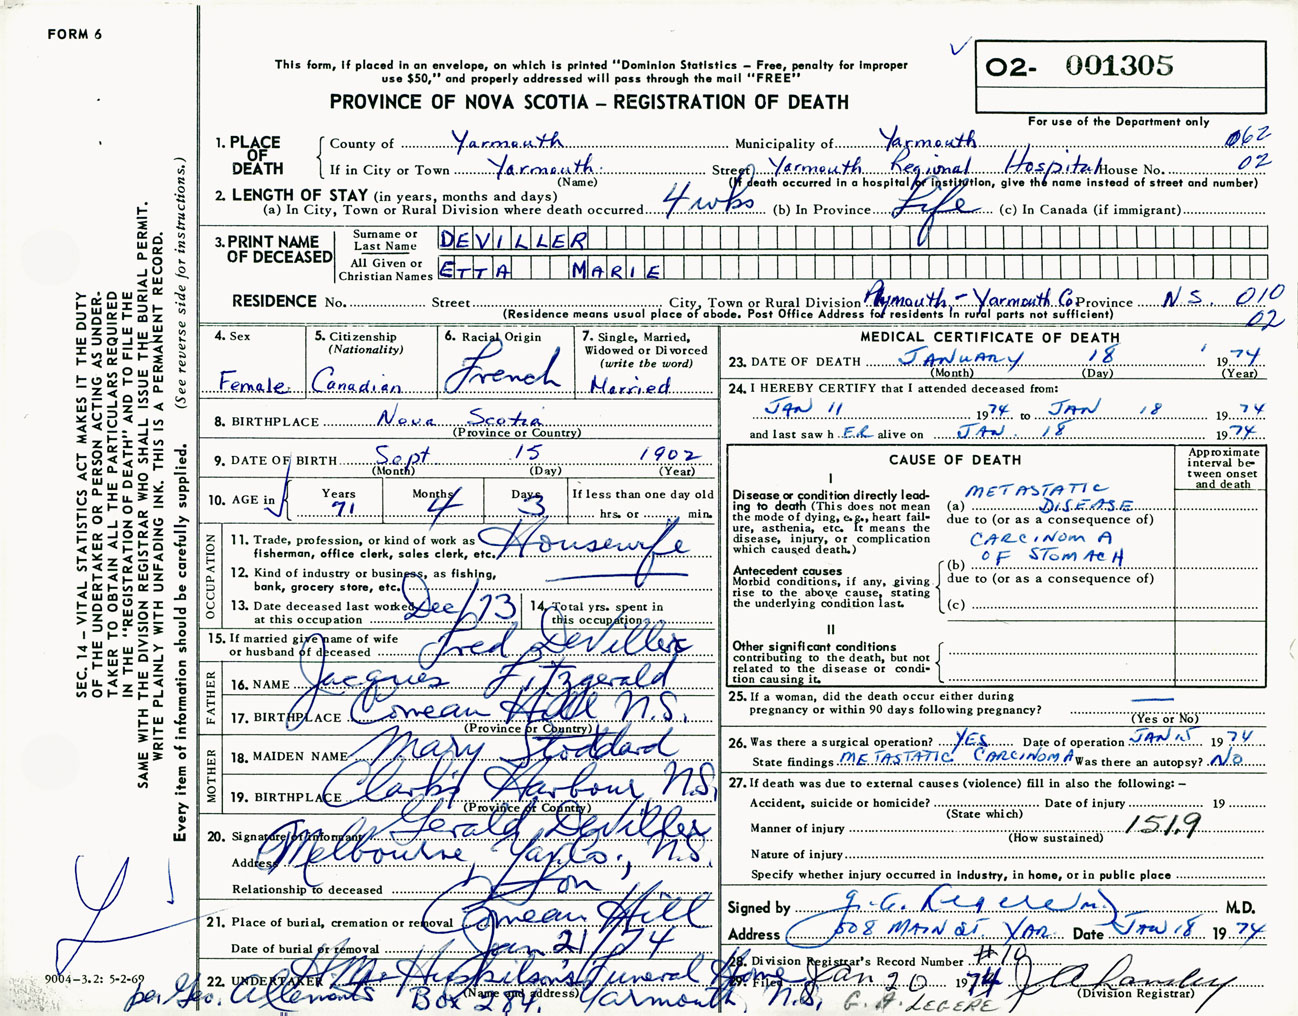 FORM 6
This form, if placed in an envelope, on which is printed "Dominion Statistics – Free, penalty for improper
use $50," and properly addressed will pass through the mail "FREE"
PROVINCE OF NOVA SCOTIA – REGISTRATION OF DEATH
O2- 001305
For use of the Department only
1. PLACE OF DEATH
County of Yarmouth Municipality of Yarmouth 062
If in City or Town Yarmouth Street Yarmouth Regional Hospital House No. 02
(Name) (If death occurred in a hospital or institution, give the name instead of street and number)
2. LENGTH OF STAY (in years, months and days)
(a) In City, Town or Rural Division where death occurred 4 wks (b) In Province Life (c) In Canada (if immigrant)
3. PRINT NAME OF DECEASED
Surname or Last Name DEVILLER
All Given or Christian Names ETTA MARIE
RESIDENCE No. Street City, Town or Rural Division Plymouth – Yarmouth Co Province N.S. 010
(Residence means usual place of abode. Post Office Address for residents in rural parts not sufficient) 02
4. Sex
Female
5. Citizenship
(Nationality)
Canadian
6. Racial Origin
French
7. Single, Married,
Widowed or Divorced
(write the word)
Married
8. BIRTHPLACE Nova Scotia
(Province or Country)
9. DATE OF BIRTH Sept 15 1902
(Month) (Day) (Year)
10. AGE in
Years Months Days If less than one day old
71 4 3 hrs. or min.
OCCUPATION
11. Trade, profession, or kind of work as
fisherman, office clerk, sales clerk, etc. Housewife
12. Kind of industry or business, as fishing,
bank, grocery store, etc.
13. Date deceased last worked
at this occupation Dec/73
14. Total yrs. spent in
this occupation
15. If married give name of wife
or husband of deceased Fred DeViller
FATHER
16. NAME Jacques Fitzgerald
17. BIRTHPLACE Comeau Hill N.S.
(Province or Country)
MOTHER
18. MAIDEN NAME Mary Stoddard
19. BIRTHPLACE Clark's Harbour N.S.
(Province or Country)
20. Signature of informant Gerald DeViller
Address Melbourne, Yar. Co., N.S.
Relationship to deceased Son
21. Place of burial, cremation or removal Comeau Hill
Date of burial or removal Jan 21/74
22. UNDERTAKER Funeral Home
(Name and address)
per Geo. Box 284, Yarmouth, N.S.
MEDICAL CERTIFICATE OF DEATH
23. DATE OF DEATH JANUARY 18 1974
(Month) (Day) (Year)
24. I HEREBY CERTIFY that I attended deceased from:
JAN 11 1974 to JAN 18 1974
and last saw h ER alive on JAN. 18 1974
CAUSE OF DEATH
Approximate interval between onset and death
I
Disease or condition directly lead-
ing to death (This does not mean
the mode of dying, e.g., heart fail-
ure, asthenia, etc. It means the
disease, injury, or complication
which caused death.)
(a) METASTATIC DISEASE
due to (or as a consequence of)
CARCINOMA
Antecedent causes
Morbid conditions, if any, giving
rise to the above cause, stating
the underlying condition last.
(b) OF STOMACH
due to (or as a consequence of)
(c)
II
Other significant conditions
contributing to the death, but not
related to the disease or condi-
tion causing it.
25. If a woman, did the death occur either during
pregnancy or within 90 days following pregnancy?
(Yes or No)
26. Was there a surgical operation? YES Date of operation JAN 15 1974
State findings METASTATIC CARCINOMA Was there an autopsy? NO
27. If death was due to external causes (violence) fill in also the following: –
Accident, suicide or homicide? Date of injury 19
(State which)
Manner of injury 151.9
(How sustained)
Nature of injury
Specify whether injury occurred in industry, in home, or in public place
Signed by M.D.
Address 508 MAIN ST. YAR. Date JAN 18 1974
28. Division Registrar's Record Number #10
29. Filed Jan 20 1974
(Division Registrar)
G. A. LEGERE
SEC. 14 – VITAL STATISTICS ACT MAKES IT THE DUTY
OF THE UNDERTAKER OR PERSON ACTING AS UNDER-
TAKER TO OBTAIN ALL THE PARTICULARS REQUIRED
IN THE "REGISTRATION OF DEATH" AND TO FILE THE
SAME WITH THE DIVISION REGISTRAR WHO SHALL ISSUE THE BURIAL PERMIT.
WRITE PLAINLY WITH UNFADING INK. THIS IS A PERMANENT RECORD.
Every item of Information should be carefully supplied. (See reverse side for instructions.)
9004-3.2: 5-2-69